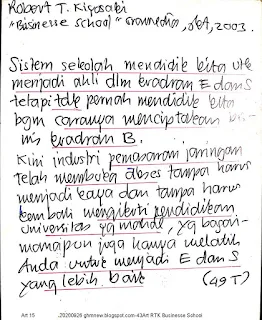 Robert T. Kiyosaki
"Businesse school" Gramedia, JKA, 2003.
Sistem sekolah mendidik kita utk
menjadi ahli dlm kradran E dan S
tetapi tdk pernah mendidik kita
bgm caranya menciptakan bi-
nis kradran B.
Kini industri pemasaran jaringan
telah membuka akses tanpa harus
menjadi kaya dan tanpa harus
kembali mengikuti pendidikan
universitas yg mahal, yg bagai-
manapun juga hanya melatih
Anda untuk menjadi E dan S
yang lebih baik (49 T)
Art 15 .20200926 ghmnew.blogspot.com-43Art RTK Businesse School